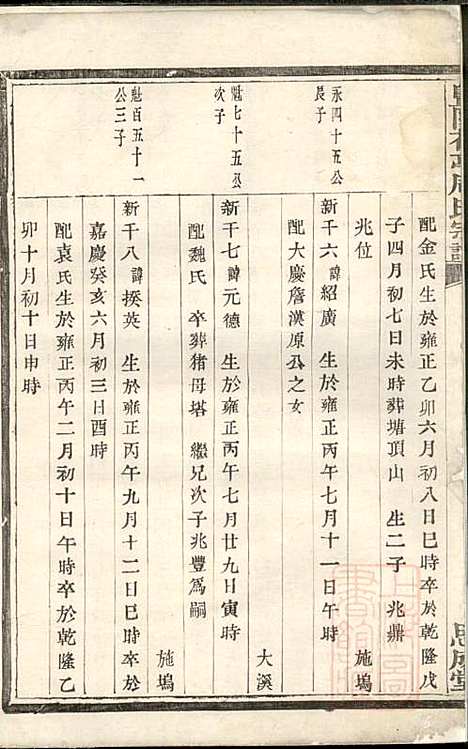 配金氏生於雍正乙卯六月初八日巳時卒於乾隆戊
子四月初七日未時葬塘頂山 生二子 兆鼎
兆位 施塢
永四十五公長子
新千六諱紹廣 生於雍正丙午七月十一日午時
配大慶詹漢原公之女 大溪
魁七十五公次子
新千七諱元德 生於雍正丙午七月廿九日寅時
配魏氏 卒葬猪母塔 繼兄次子兆豐爲嗣
施塢
魁百五十一公三子
新千八諱揆英 生於雍正丙午九月十二日巳時卒於
嘉慶癸亥六月初三日酉時
配袁氏生於雍正丙午二月初十日午時卒於乾隆乙
卯十月初十日申時
周氏宗譜
思成堂